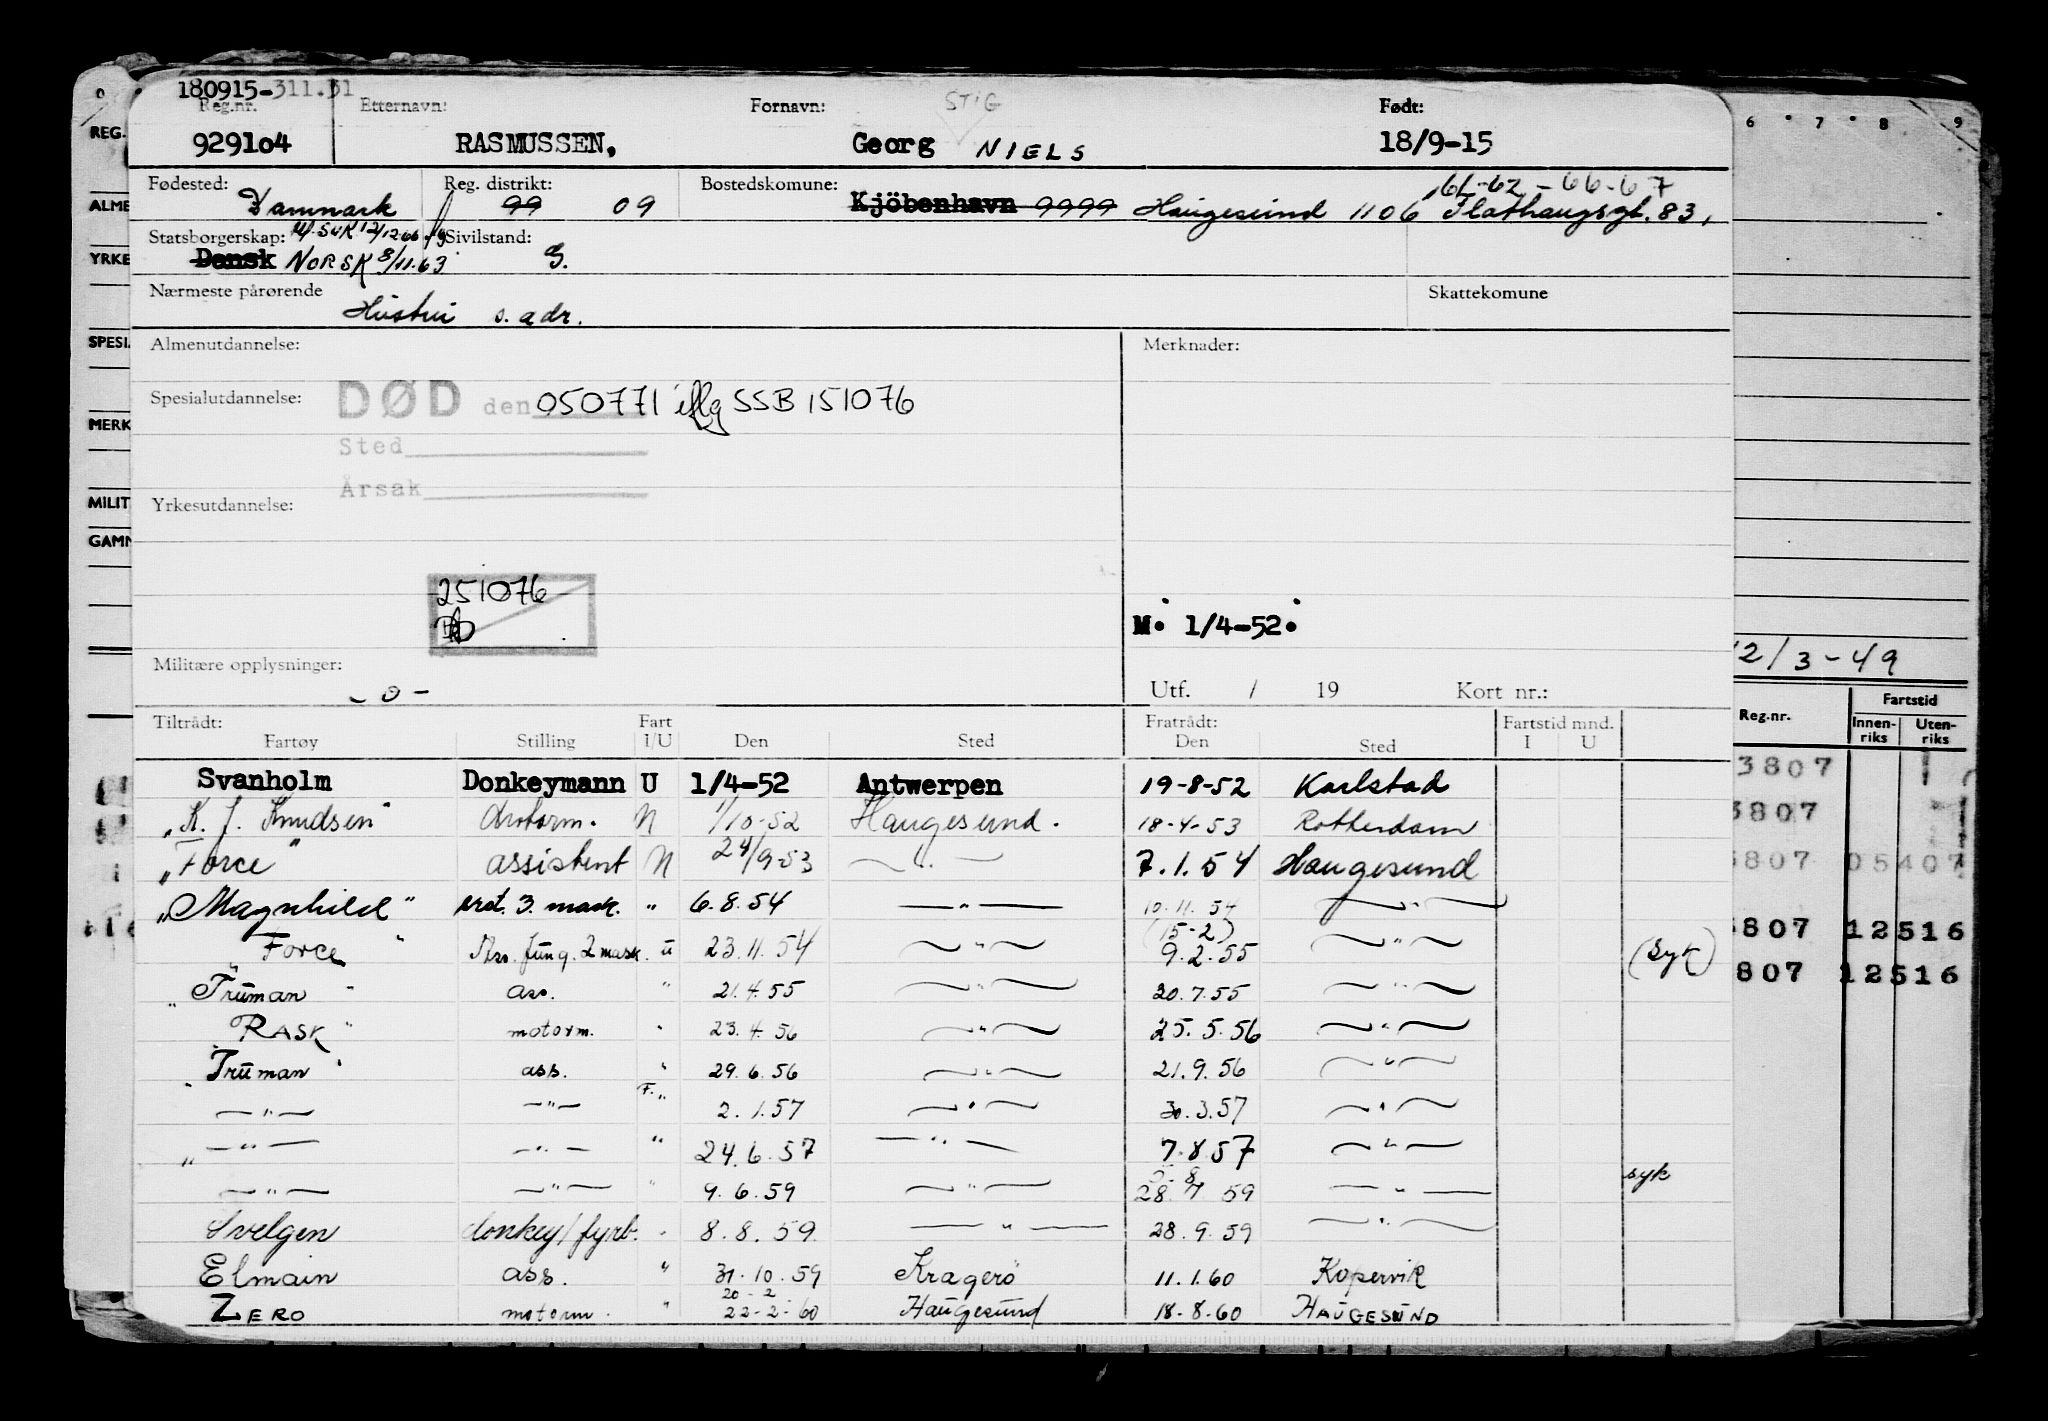 180915-311.31
Reg.nr. Etternavn: Fornavn: STIG Født:
929104 RASMUSSEN, Georg NIELS 18/9-15
Fødested: Reg. distrikt: Bostedskomune: 61-62-66-67
Danmark 99 09 Kjöbenhavn 9999 Haugesund 1106 Flathaugsgt. 83,
Statsborgerskap: Sivilstand:
Dansk NORSK 8/11.63 G.
Nærmeste pårørende Skattekomune
Hustru s. adr.
Almenutdannelse: Merknader:
Spesialutdannelse: DØD den 050771 iflg SSB 151076
Sted
Årsak
Yrkesutdannelse:
251076
M. 1/4-52.
Militære opplysninger:
- 0 -
Utf. / 19 Kort nr.:
Tiltrådt: Fart Fratrådt: Fartstid mnd.
Fartøy Stilling I/U Den Sted Den Sted I U
Svanholm Donkeymann U 1/4-52 Antwerpen 19-8-52 Karlstad
"K. J. Knudsen" Motorm. N 1/10-52 Haugesund. 18-4-53 Rotterdam
"Force" assistent N 24/9-53 — " — 7.1.54 Haugesund
"Magnhild" ast. 3. mask. " 6.8.54 — " — 10.11.54 — " —
(15-2)
"Force" Ass. fung. 2 mask. u 23.11.54 — " — 9.2.55 — " — (Syk)
"Truman" ass. " 21.4.55 — " — 20.7.55 — " —
"RASK" motorm. " 23.4.56 — " — 25.5.56 — " —
"Truman" ass. " 29.6.56 — " — 21.9.56 — " —
— " — — " — F. " 2.1.57 — " — 30.3.57 — " —
— " — — " — " 24.6.57 — " — 7.8.57 — " —
— " — — " — " 9.6.59 — " — 28.7.59 — " — syk
Svelgen donkey/fyrb. " 8.8.59 — " — 28.9.59 — " —
Elmain ass. " 31.10.59 Kragerö 11.1.60 Kopervik
20-2
ZERO motorm. " 22-2-60 Haugesund 18-8-60 HAUGESUND
REG.
ALME
YRKE
SPESI
MERK
MILIT
GAMN
6 7 8 9
12/3-49
Reg.nr. Fartstid
Innenriks Utenriks
3807
3807
3807 05407
3807 12516
807 12516